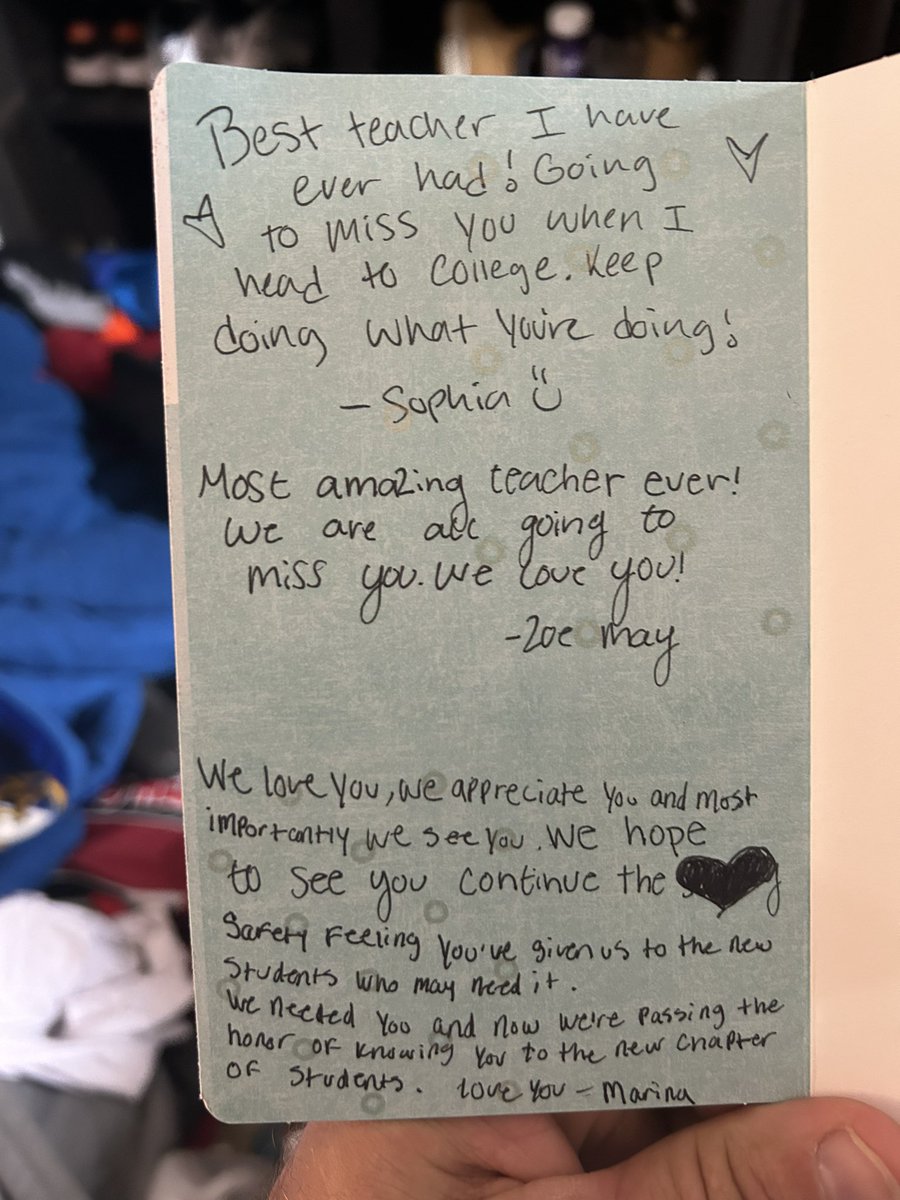 Best teacher I have
ever had! Going
to miss you when I
head to college. Keep
doing what you're doing!
- Sophia
Most amazing teacher ever!
We are all going to
miss you. We love you!
- Zoe may
We love you, we appreciate you and most
importantly we see you. We hope
to see you continue the
Safety Feeling you've given us to the new
Students who may need it.
We needed you and now we're passing the
honor of knowing you to the new chapter
of students. love you - Marina